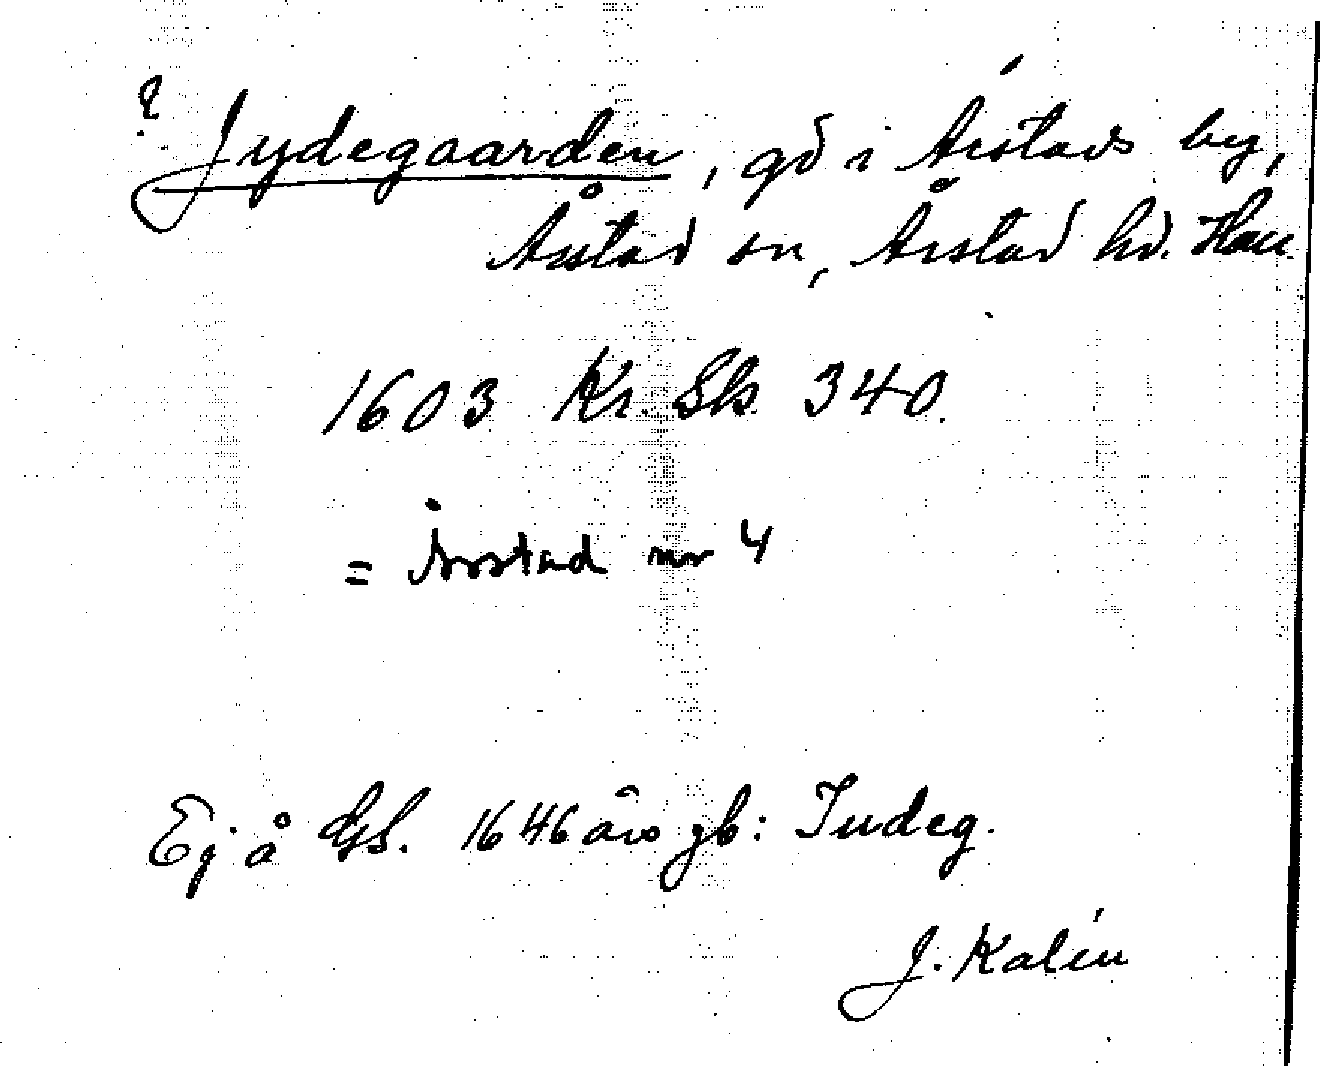 ? Jydegaarden, gd i Årstads by,
Årstad sn, Årstad hd. Hall.
1603 Kr. Sk. 340.
= Årstad nr 4
Ej å GS. 1646 års jb: Judeg.
J. Kalén